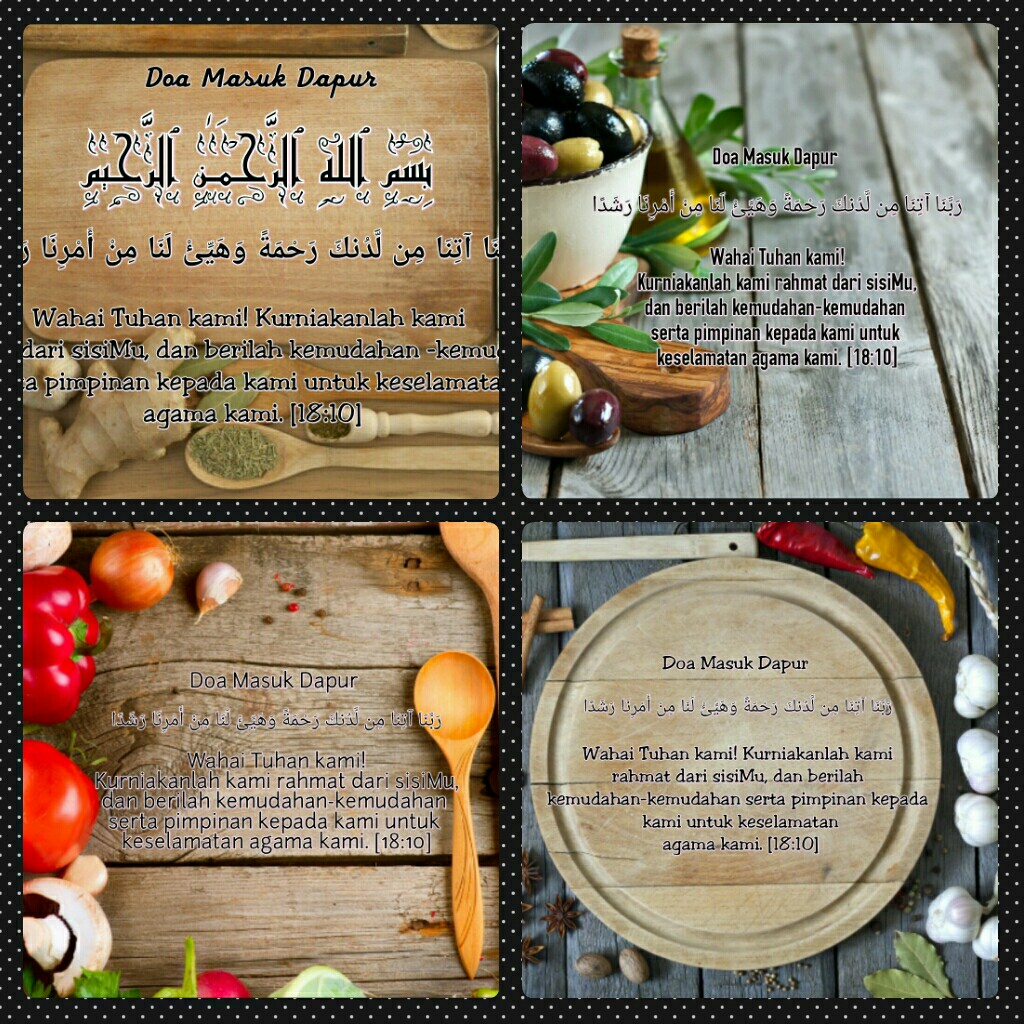 Doa Masuk Dapur
بِسْمِ ٱللَّهِ ٱلرَّحْمَٰنِ ٱلرَّحِيمِ
آتِنَا مِن لَّدُنكَ رَحْمَةً وَهَيِّئْ لَنَا مِنْ أَمْرِنَا
Wahai Tuhan kami! Kurniakanlah kami
dari sisiMu, dan berilah kemudahan
pimpinan kepada kami untuk
agama kami. [18:10]
Doa Masuk Dapur
رَبَّنَا آتِنَا مِن لَّدُنكَ رَحْمَةً وَهَيِّئْ لَنَا مِنْ أَمْرِنَا رَشَدًا
Wahai Tuhan kami!
Kurniakanlah kami rahmat dari sisiMu,
dan berilah kemudahan-kemudahan
serta pimpinan kepada kami untuk
keselamatan agama kami. [18:10]
Doa Masuk Dapur
رَبَّنَا آتِنَا مِن لَّدُنكَ رَحْمَةً وَهَيِّئْ لَنَا مِنْ أَمْرِنَا رَشَدًا
Wahai Tuhan kami!
Kurniakanlah kami rahmat dari sisiMu,
dan berilah kemudahan-kemudahan
serta pimpinan kepada kami untuk
keselamatan agama kami. [18:10]
Doa Masuk Dapur
رَبَّنَا آتِنَا مِن لَّدُنكَ رَحْمَةً وَهَيِّئْ لَنَا مِنْ أَمْرِنَا رَشَدًا
Wahai Tuhan kami! Kurniakanlah kami
rahmat dari sisiMu, dan berilah
kemudahan-kemudahan serta pimpinan kepada
kami untuk keselamatan
agama kami. [18:10]